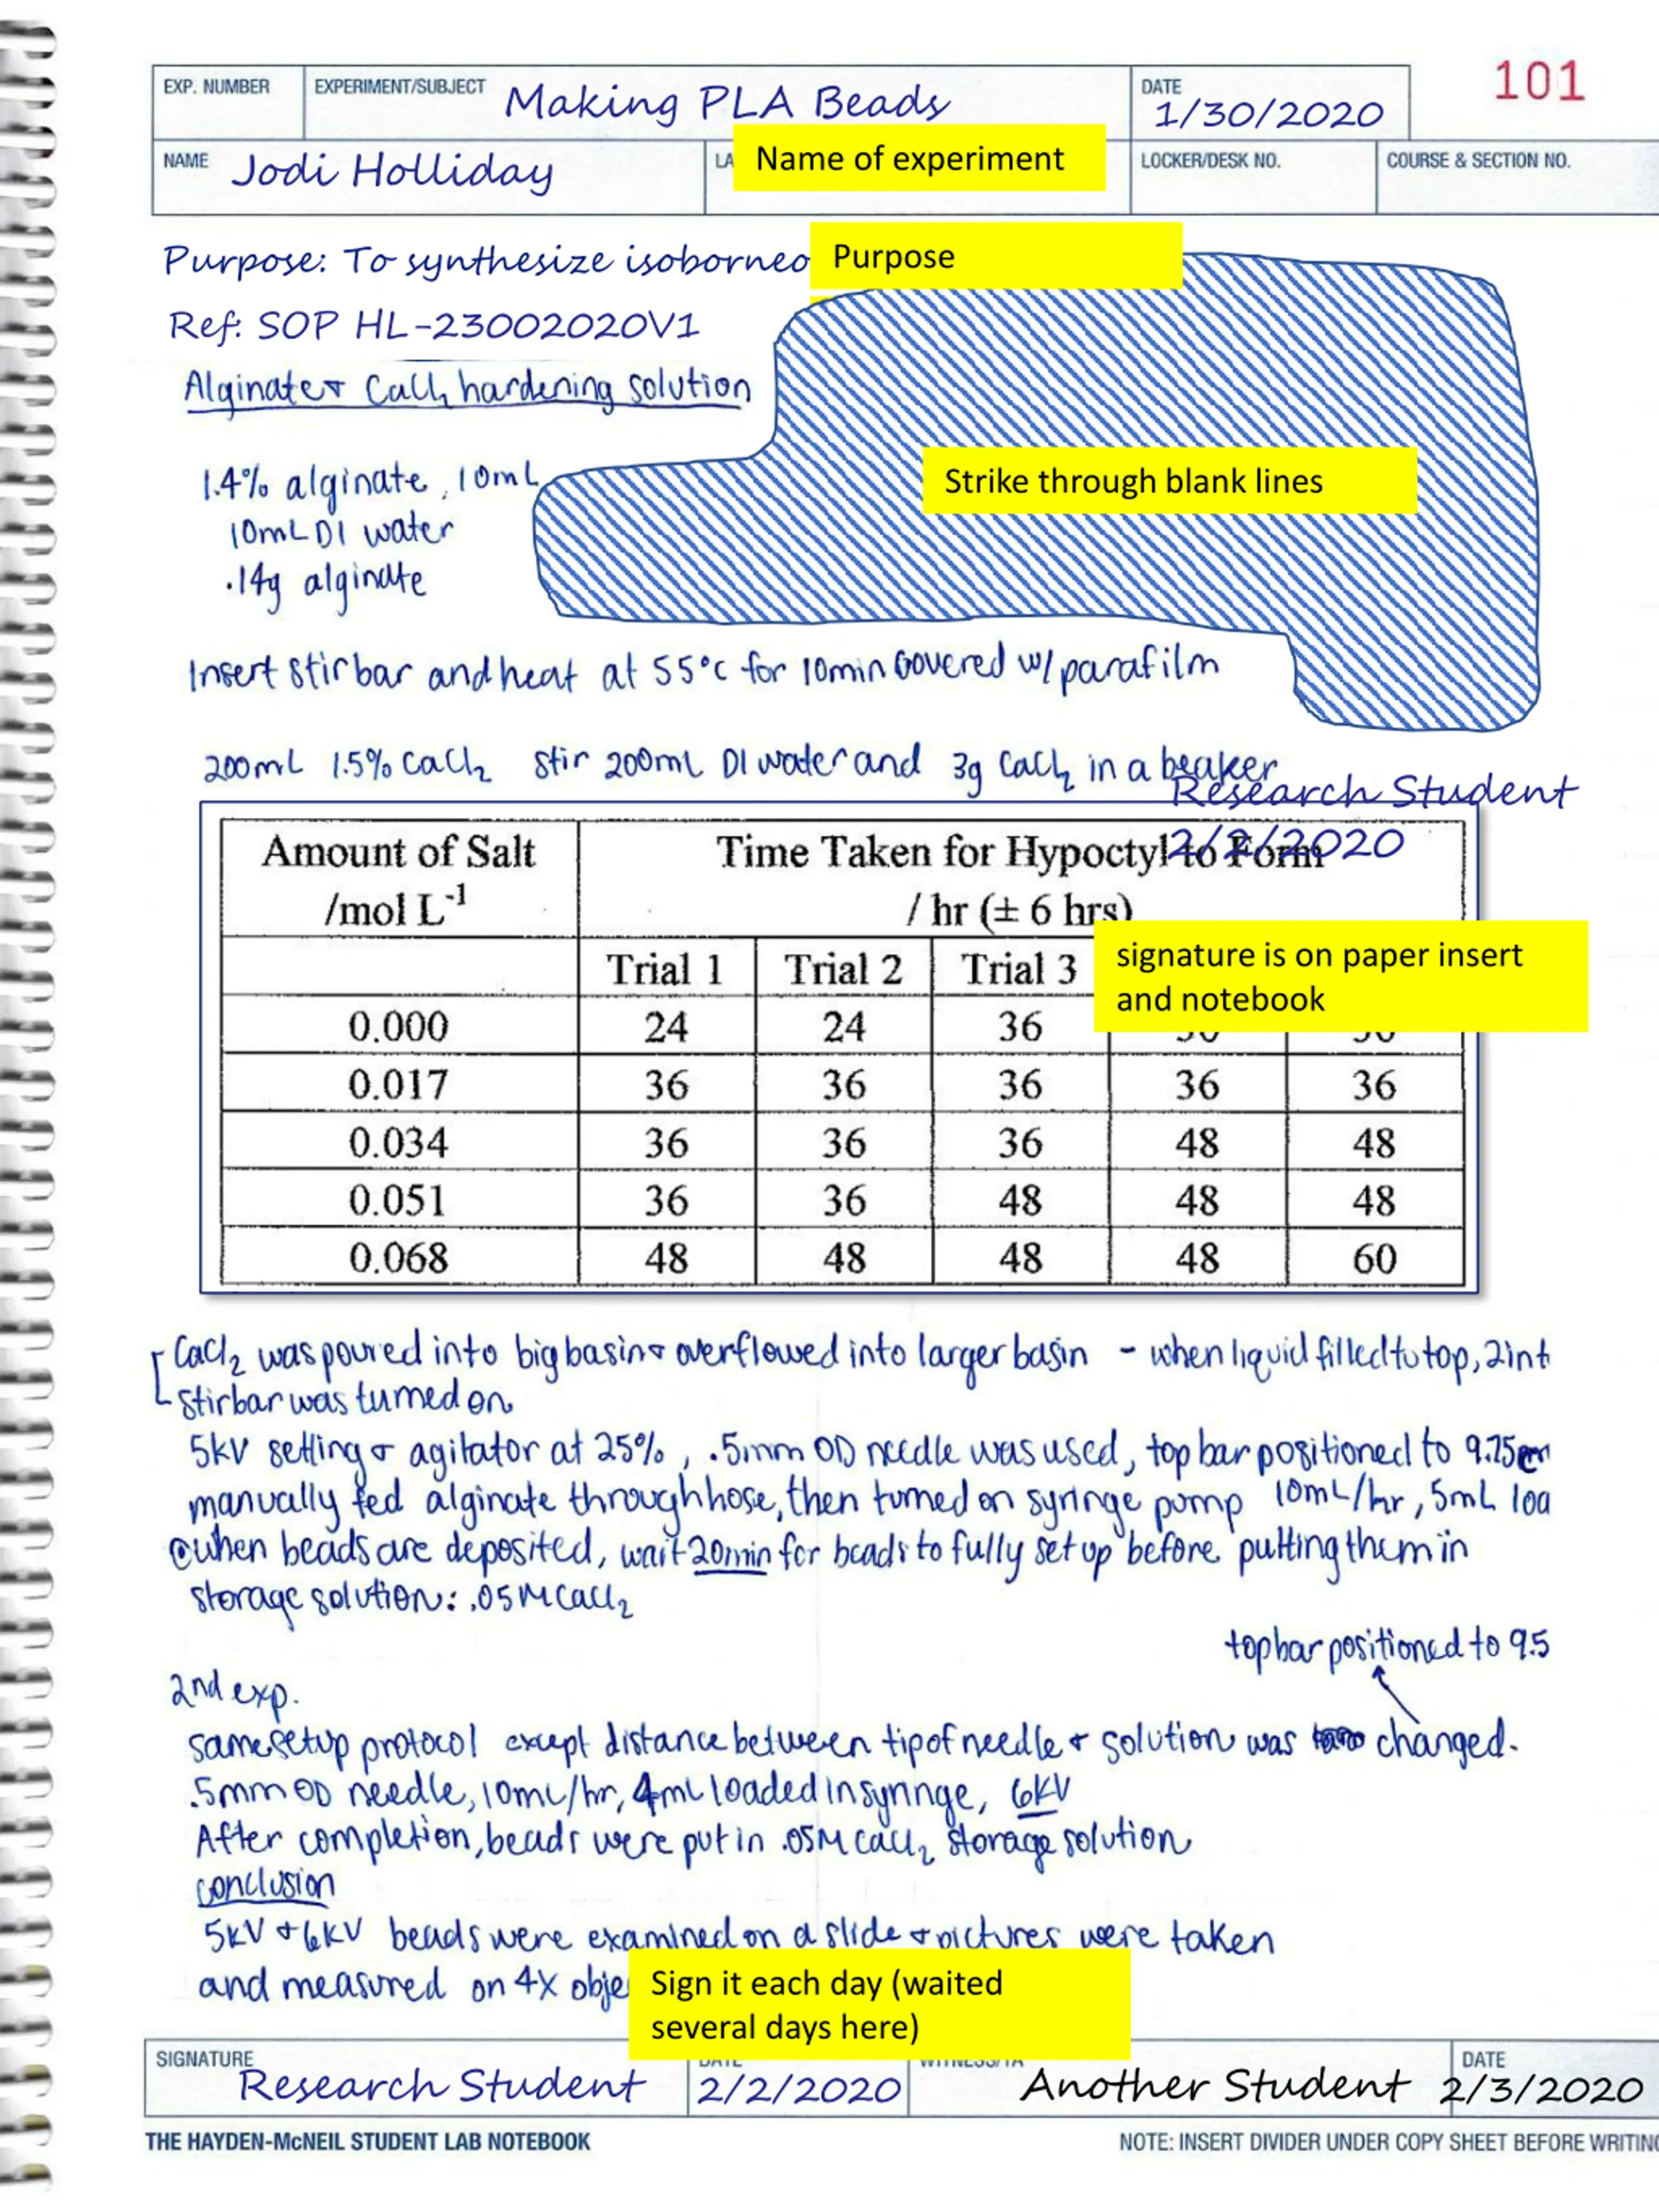 EXP. NUMBER EXPERIMENT/SUBJECT Making PLA Beads DATE 1/30/2020 101
NAME Jodi Holliday LA Name of experiment LOCKER/DESK NO. COURSE & SECTION NO.
Purpose: To synthesize isoborneo Purpose
Ref: SOP HL-23002020V1
Alginate + CaCl2 hardening solution
1.4% alginate, 10mL
Strike through blank lines
10mL DI water
.14g alginate
Insert stir bar and heat at 55°C for 10min covered w/ parafilm
200mL 1.5% CaCl2 stir 200mL DI water and 3g CaCl2 in a beaker
Research Student
2/2/2020
Amount of Salt Time Taken for Hypoctyl to Form
/mol L-1 / hr (± 6 hrs)
Trial 1 Trial 2 Trial 3
signature is on paper insert
and notebook
0.000 24 24 36
0.017 36 36 36 36 36
0.034 36 36 36 48 48
0.051 36 36 48 48 48
0.068 48 48 48 48 60
CaCl2 was poured into big basin + overflowed into larger basin - when liquid filled to top, 2 int
stir bar was turned on
5kV setting + agitator at 25%, .5mm OD needle was used, top bar positioned to 9.75cm
manually fed alginate through hose, then turned on syringe pump 10mL/hr, 5mL loa
when beads are deposited, wait 20min for beads to fully set up before putting them in
storage solution: .05M CaCl2
top bar positioned to 9.5
2nd exp.
same setup protocol except distance between tip of needle + solution was changed.
.5mm OD needle, 10mL/hr, 4mL loaded in syringe, 6kV
After completion, beads were put in .05M CaCl2 storage solution
conclusion
5kV + 6kV beads were examined on a slide + pictures were taken
and measured on 4x obje
Sign it each day (waited
several days here)
SIGNATURE Research Student DATE 2/2/2020 WITNESS/TA Another Student DATE 2/3/2020
THE HAYDEN-McNEIL STUDENT LAB NOTEBOOK NOTE: INSERT DIVIDER UNDER COPY SHEET BEFORE WRITING